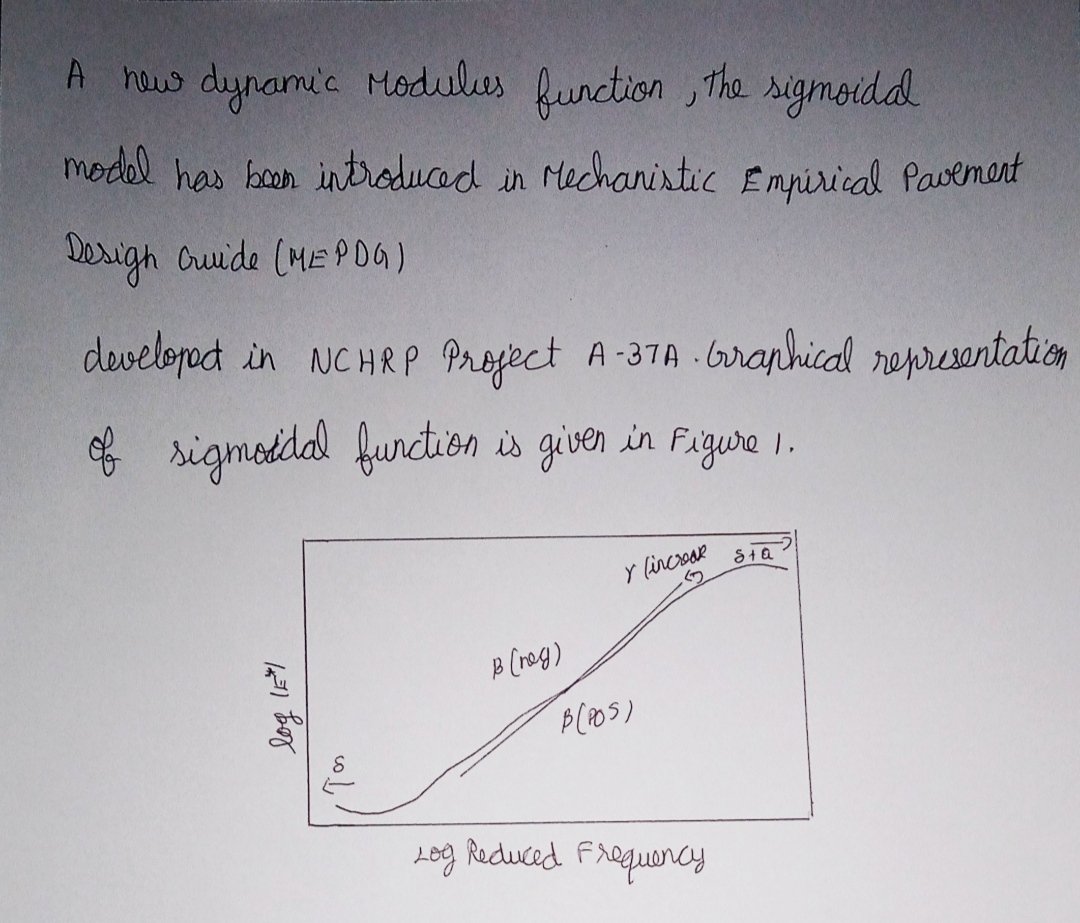 A new dynamic Modulus function, The sigmoidal
model has been introduced in Mechanistic Empirical Pavement
Design Guide (MEPDG)
developed in NCHRP Project A-37A. Graphical representation
of sigmoidal function is given in Figure 1.
γ (increase
δ+a
β (neg)
β (POS)
log |E*|
δ
Log Reduced Frequency